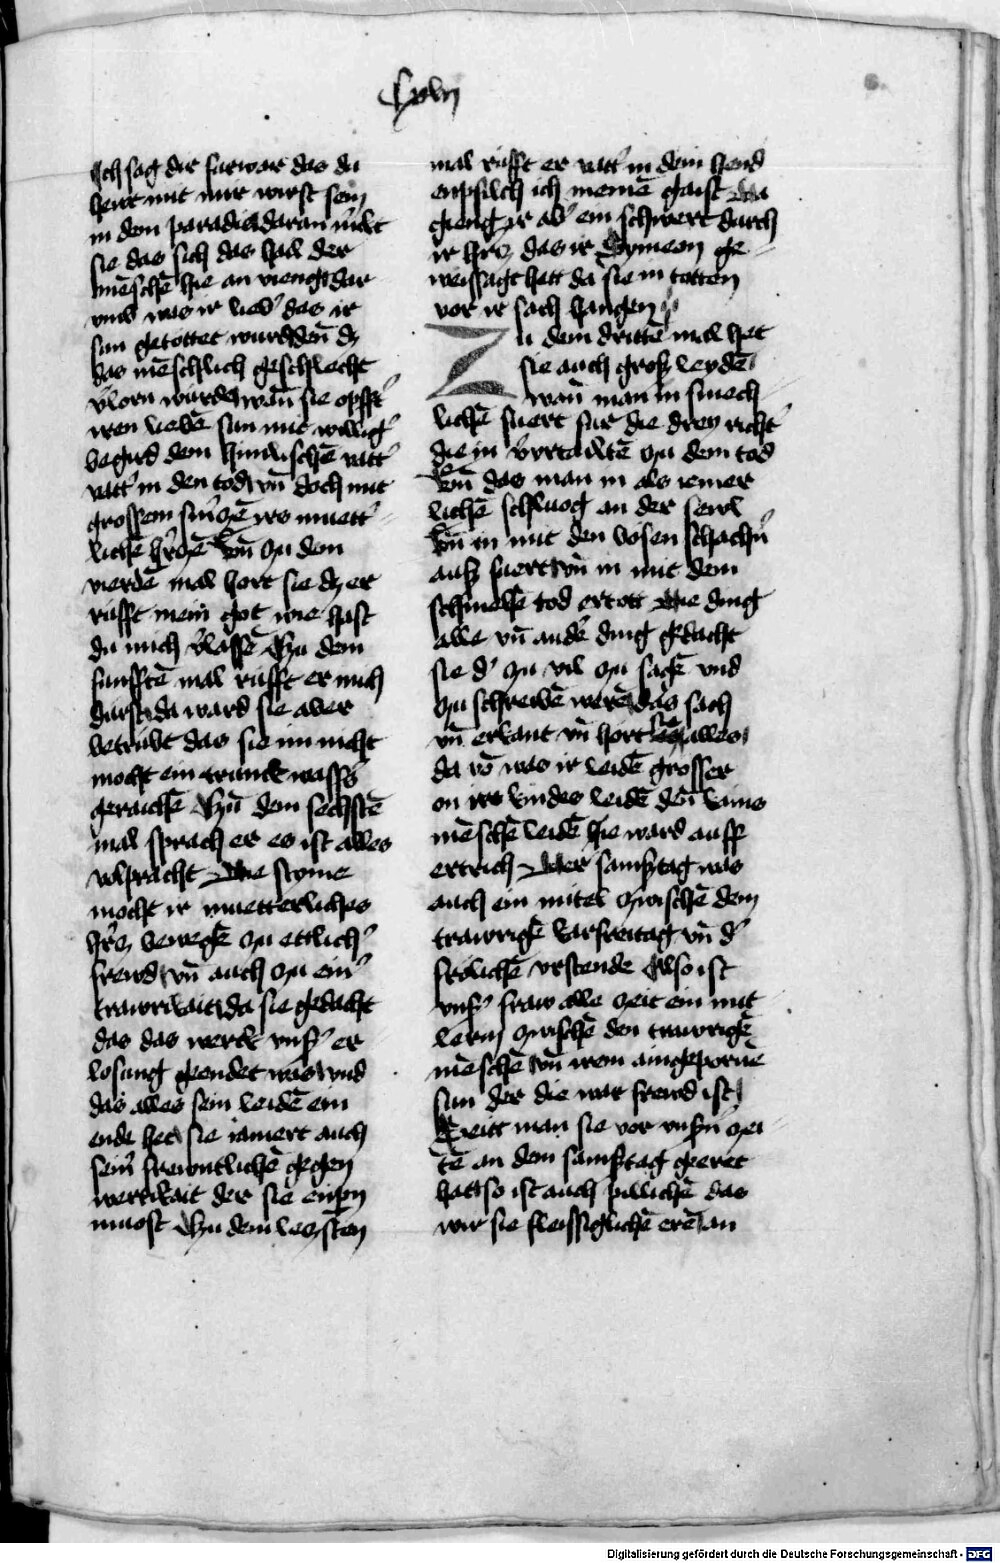 Lxvij
Ich sag dir furwar das du
heut mit mir wirst sein
in dem paradis daran merkt
sie das sich das hail der
mēschē hie an vieng dar
vmb was ir lieb' das ir
sun getöttet wurd den dz
das mēschlich geschlecht
v'lorn wurd wan̄ sie opfft'
iren liebē sun mit willig'
begird dem himlischē vatt'
vatt' in den tod vn̄ doch mit
grossem sm'czē irs muett'
lichē h'czē Vn̄ zu dem
vierdē mal hort sie dz er
rüfft mein got wie hast
du mich v'lassē Zu dem
funfftē mal rüfft er mich
durst da ward sie aber
betrübt das sie im nicht
mocht ein trunck wass's
geraichē Zu dem sechstē
mal sprach er es ist alles
volpracht Die styme
mocht ir muetterliches
h'cz bewegē zu ettlich'
frewd vn̄ auch zu ein'
trawrikait da sie gedacht
das das werck vns' er
losung geendet was vnd
das alles sein leidē ein
ende het sie iamert auch
sein' frewntlichē gegen
wertikait der sie enpern
muost Zu dem leczsten
mal rüfft er vatt' in dein hend
enpfilch ich meinē gaist Da
gieng ir ab' ein schwert durch
ir hrcz das ir Symeon ge
weissagt hett da sie in totten
vor ir sach hangen
Zu dem drittē mal het
sie auch grosz leydē
wan̄ man in smech
lichē fuert fur die drey richt'
die in v'vrtailtē zu dem tod
Vn̄ das man in als iemer
lichē schluog an der sewl
Vn̄ in mit den bosen schach'n
ausz fuert vn̄ in mit dem
schmehē tod ertott Die ding
alle vn̄ ander ding gedacht
sie d' zu vil zu sagē vnd
zu schreibē werē das sach
vn̄ erkant vn̄ hort sie alles
da vō was ir leidē grosser
on irs kindes leidē den̄ kains
mēschē leidē hie ward auff
ertrich Der samsztag was
auch ein mitel zwischē dem
trawrigē karfreitag vn̄ d'
frölichē vrstende Also ist
vns' fraw alle zeit ein mit
lerin zwischē den trawrigē
mēschē vn̄ irem aingepornē
sun der die war frewd ist
Seitt man sie vor vns'n zei
tē an dem samsztag geeret
hatt so ist auch pillichē das
wir sie fleissiglichē erē an
Digitalisierung gefördert durch die Deutsche Forschungsgemeinschaft - DFG